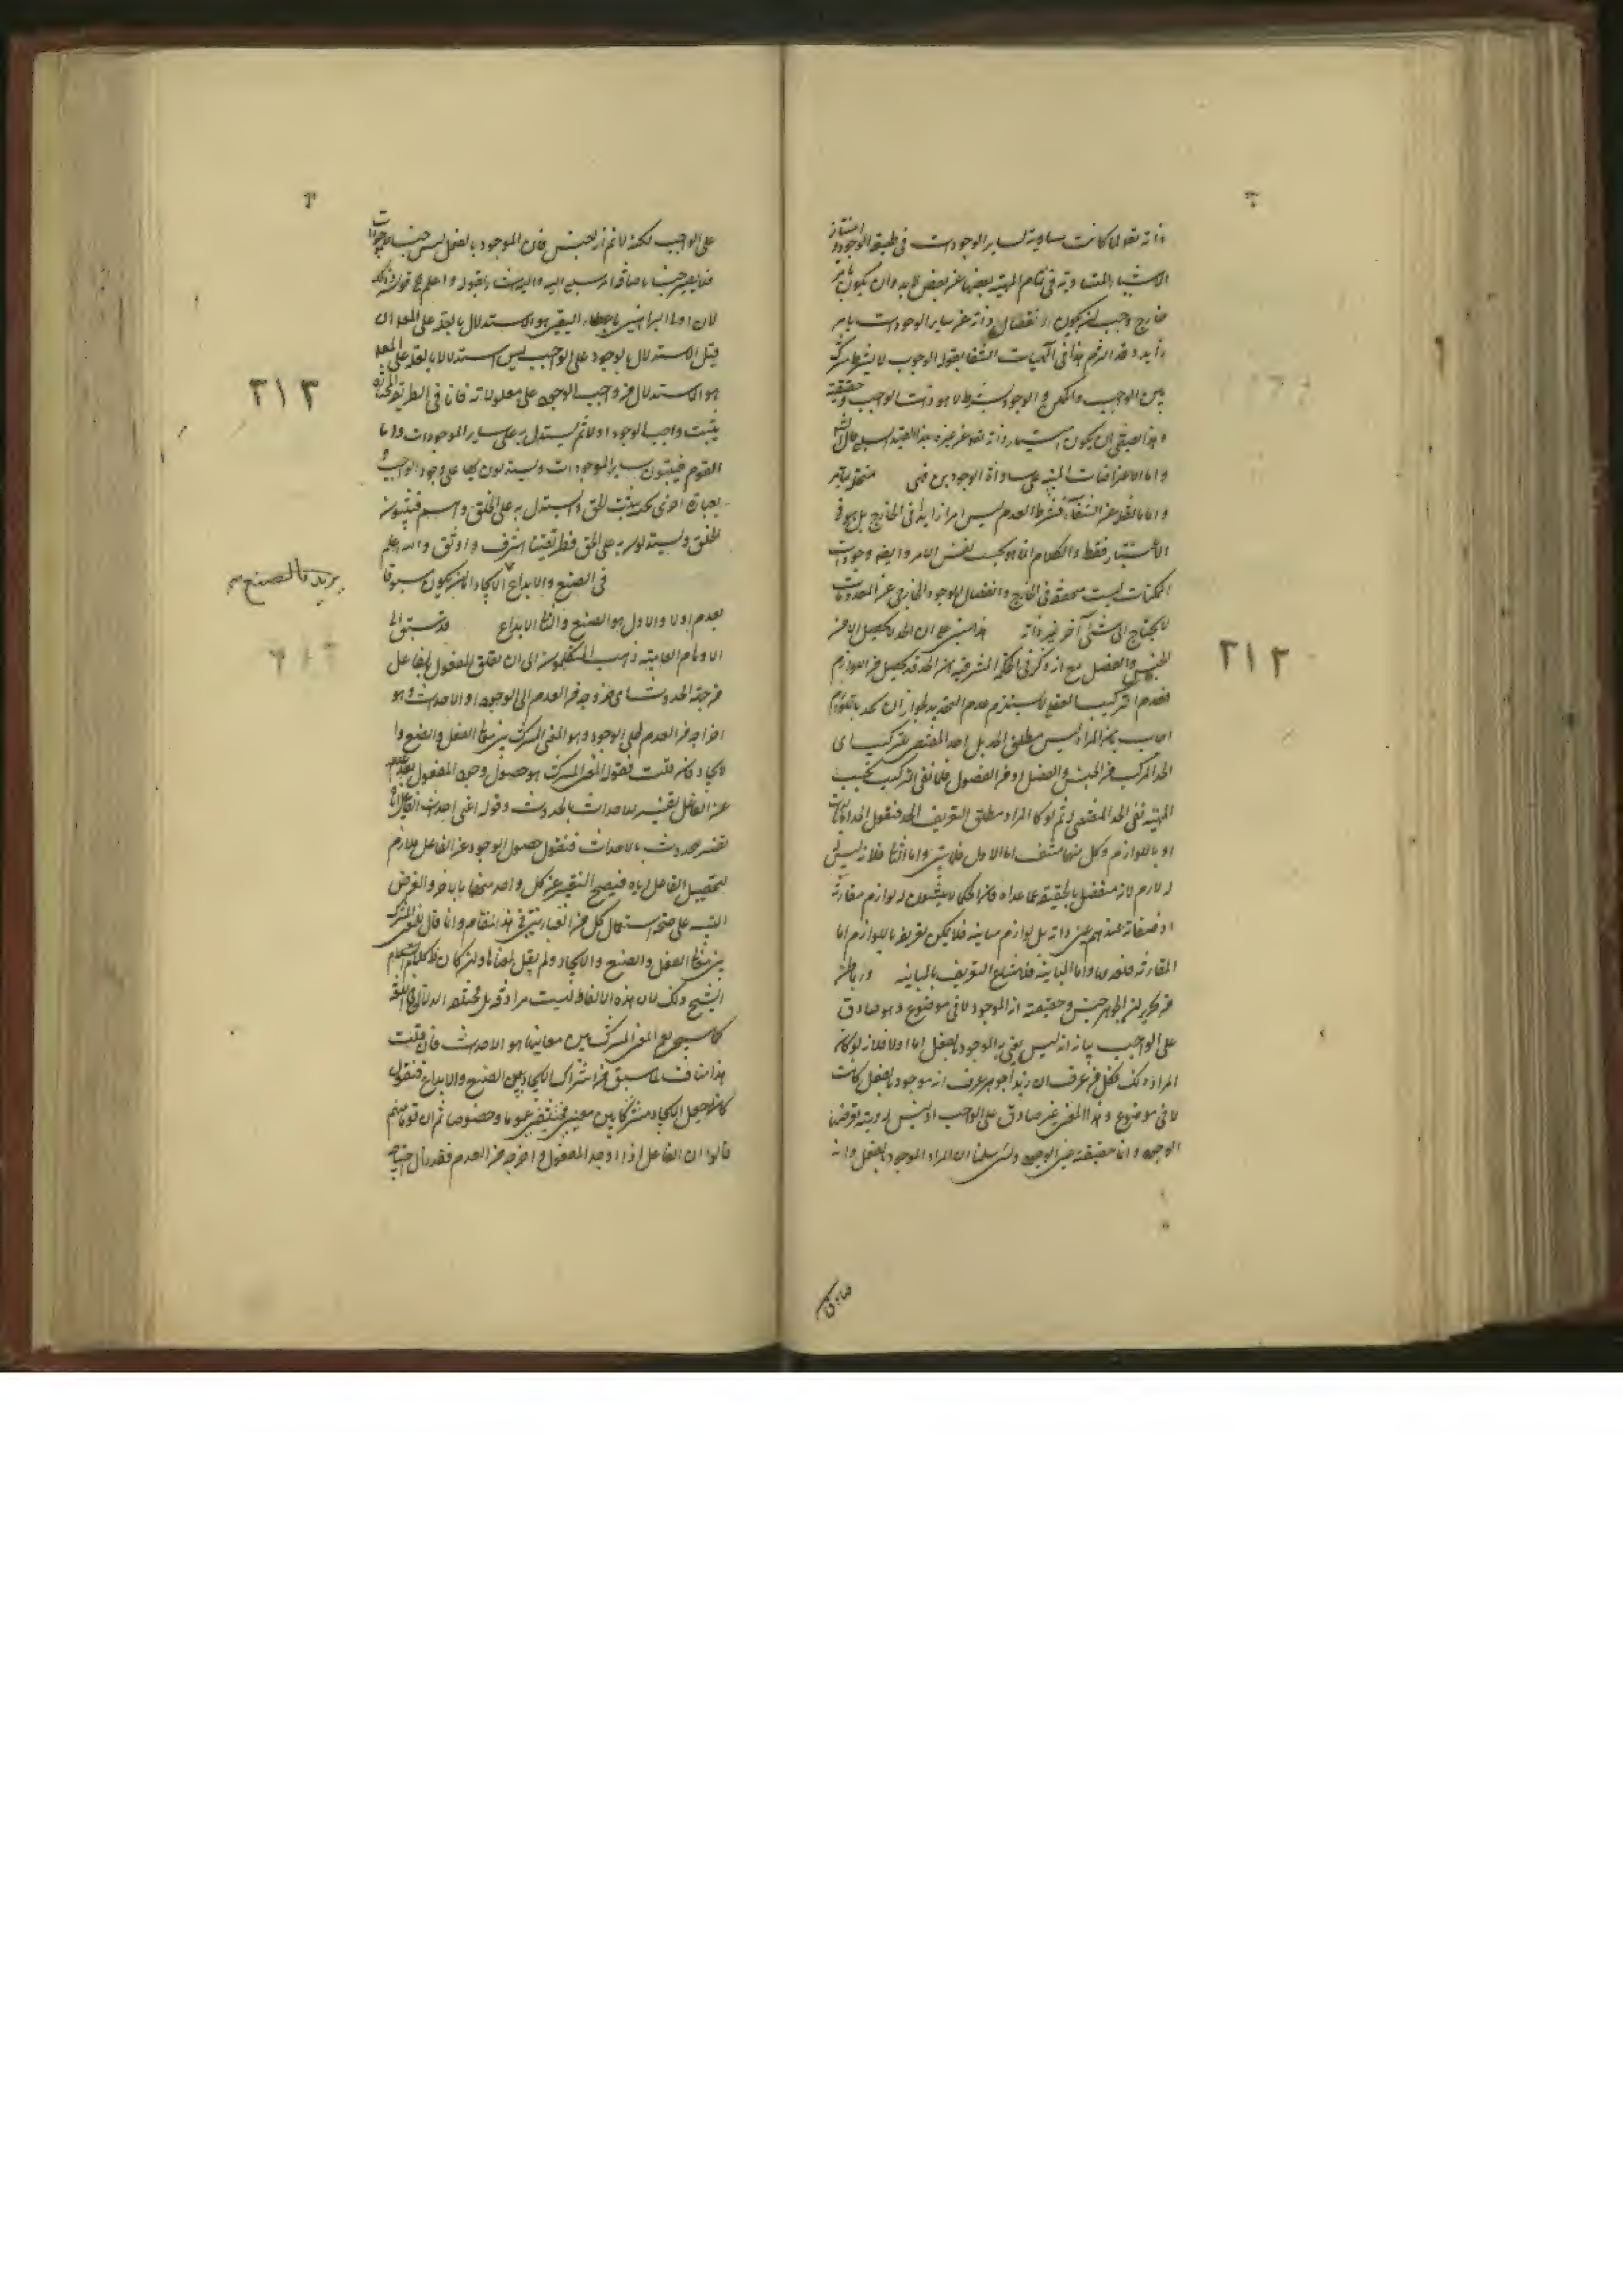 ذاته تعالى لما كانت مساوية لساير الوجودات في طبيعة الوجود وامتياز
الاشياء المتساوية في تمام المهية بعضها عن بعض لابد وان يكون بامر
خارج وجب ان يكون انفصال ذاته عن ساير الوجودات بامر
زايد وقد التزم هذا في الهيات الشفا بقوله الوجود لا بشرط مشترك
بين الواجب والممكن والوجود بشرط لا هو ذات الواجب وحقيقته
وهذا يقتضي ان يكون امتياز ذاته تعالى عن غيره بهذا القيد السلبي
واما الاعتراضات المبنية على مساواة الوجودين فهي
واما ما نقله عن الشفاء فشرط العدم ليس امرا زايدا في الخارج بل هو في
الاعتبار فقط والكلام انما هو بحسب نفس الامر وايضا وجودات
الممكنات ليست متحققة في الخارج وانفصال الموجود الخارجي عن المعدومات
لا يحتاج الى شيء آخر غير ذاته هذا مبني على ان الحد لا يحصل الا من
الجنس والفصل مع انه ذكر في الحكمة المشرقية ان الحد قد يحصل من اللوازم
فعدم التركيب العقلي لا يستلزم عدم التحديد لجواز ان يحد باللوازم
اجاب بان المراد ليس مطلق الحد بل الحد المقتضي للتركيب اي
الحد المركب من الجنس والفصل او من الفصول فلما نفى التركيب بحسب
المهية نفى الحد المقتضي له ثم لو كان المراد مطلق التعريف الحد فنقول الحد اما
او باللوازم وكل منهما منتف اما الاول فلما مر واما الثاني فلانه ليس
له لازم لانه منفصل بالحقيقة عما عداه فان الحكماء لا يثبتون له لوازم مقارنة
اذ صفاته عندهم عين ذاته بل لوازم مباينة فلا يمكن تعريفه باللوازم اما
المقارنة فلعدمها واما المباينة فلامتناع التعريف بالمباينة وربما ظن
من تحرير ان الجوهر جنس وحقيقته انه الموجود لا في موضوع وهو صادق
على الواجب بيانه انه ليس يعنى به الموجود بالفعل اما اولا فلانه لو كان
المراد ذلك فكل من عرف ان زيدا جوهر عرف انه موجود بالفعل كائنا
لا في موضوع وهذا المعنى غير صادق على الواجب اذ ليس له مهية يعرضها
الوجود وانما حقيقته عين الوجود ولئن سلمنا ان المراد الموجود بالفعل وانه
٣١٢
صادق
على الواجب لكنه لا نم انه جنس فان الموجود بالفعل ليس جنسا
فلا يصير جنسا باضافة امر سلبي اليه واليه اشار بقوله واعلم
لان اولى البراهين باعطاء اليقين هو الاستدلال بالعلة على المعلول فان
قيل الاستدلال بالوجود على الواجب ليس استدلالا بالعلة على المعلول
هو الاستدلال من واجب الوجود على معلولاته فان في الطريقة المختارة
يثبت واجب الوجود اولا ثم يستدل به على ساير الموجودات واما
القوم فيثبتون ساير الموجودات ويستدلون بها على وجود الواجب و
بعبارة اخرى نحن نثبت الحق ونستدل به على الخلق وهم يثبتون
الخلق ويستدلون به على الحق فطريقتنا اشرف واوثق والله اعلم
في الصنع والابداع الايجاد اما ان يكون مسبوقا
بعدم اولا والاول هو الصنع والثاني الابداع قد سبق الى
الاوهام العامية ذهب المتكلمون الى ان تعلق المفعول بالفاعل
من جهة الحدوث اي خروجه من العدم الى الوجود او الاحداث وهو
اخراجه من العدم الى الوجود وهو المعنى المشترك بين معاني الفعل والصنع وا
لايجاد فان قلت فقوله المعنى المشترك هو حصول وجود المفعول بعد عدم
عن الفاعل تفسير للاحداث بالحدوث وقوله اعني احداث الفاعل اياه
تفسير للحدوث بالاحداث فنقول حصول الوجود عن الفاعل ملازم
لتحصيل الفاعل اياه فيصح التعبير عن كل واحد منهما بالاخر والغرض
التنبيه على صحة استعمال كل من العبارتين في هذا المقام وانما قال المعنى المشترك
بين معاني الفعل والصنع والايجاد ولم يقل
الشيخ ذلك لان هذه الالفاظ ليست مرادفة بل مختلفة الدلالة في اللغة
كما سيجيء مع المعنى المشترك بين معانيها هو الاحداث فان قلت
هذا مناف لما سبق من اشتراك الايجاد بين الصنع والابداع فنقول
كانه جعل الايجاد مشتركا بين معنيين مختلفين عموما وخصوصا ثم ان قوما منهم
قالوا ان الفاعل اذا اوجد المفعول واخرجه من العدم فقد زال احتياجه
٣١٣
يريد بالصنع